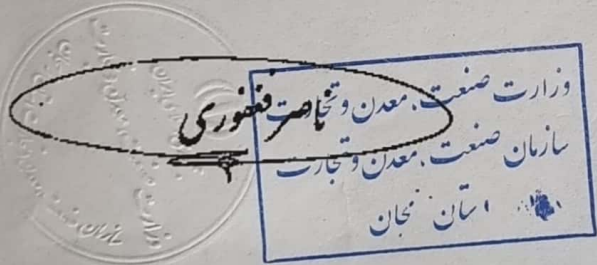 وزارت صنعت، معدن و تجارت
سازمان صنعت، معدن و تجارت
استان زنجان
ناصر فغفوری